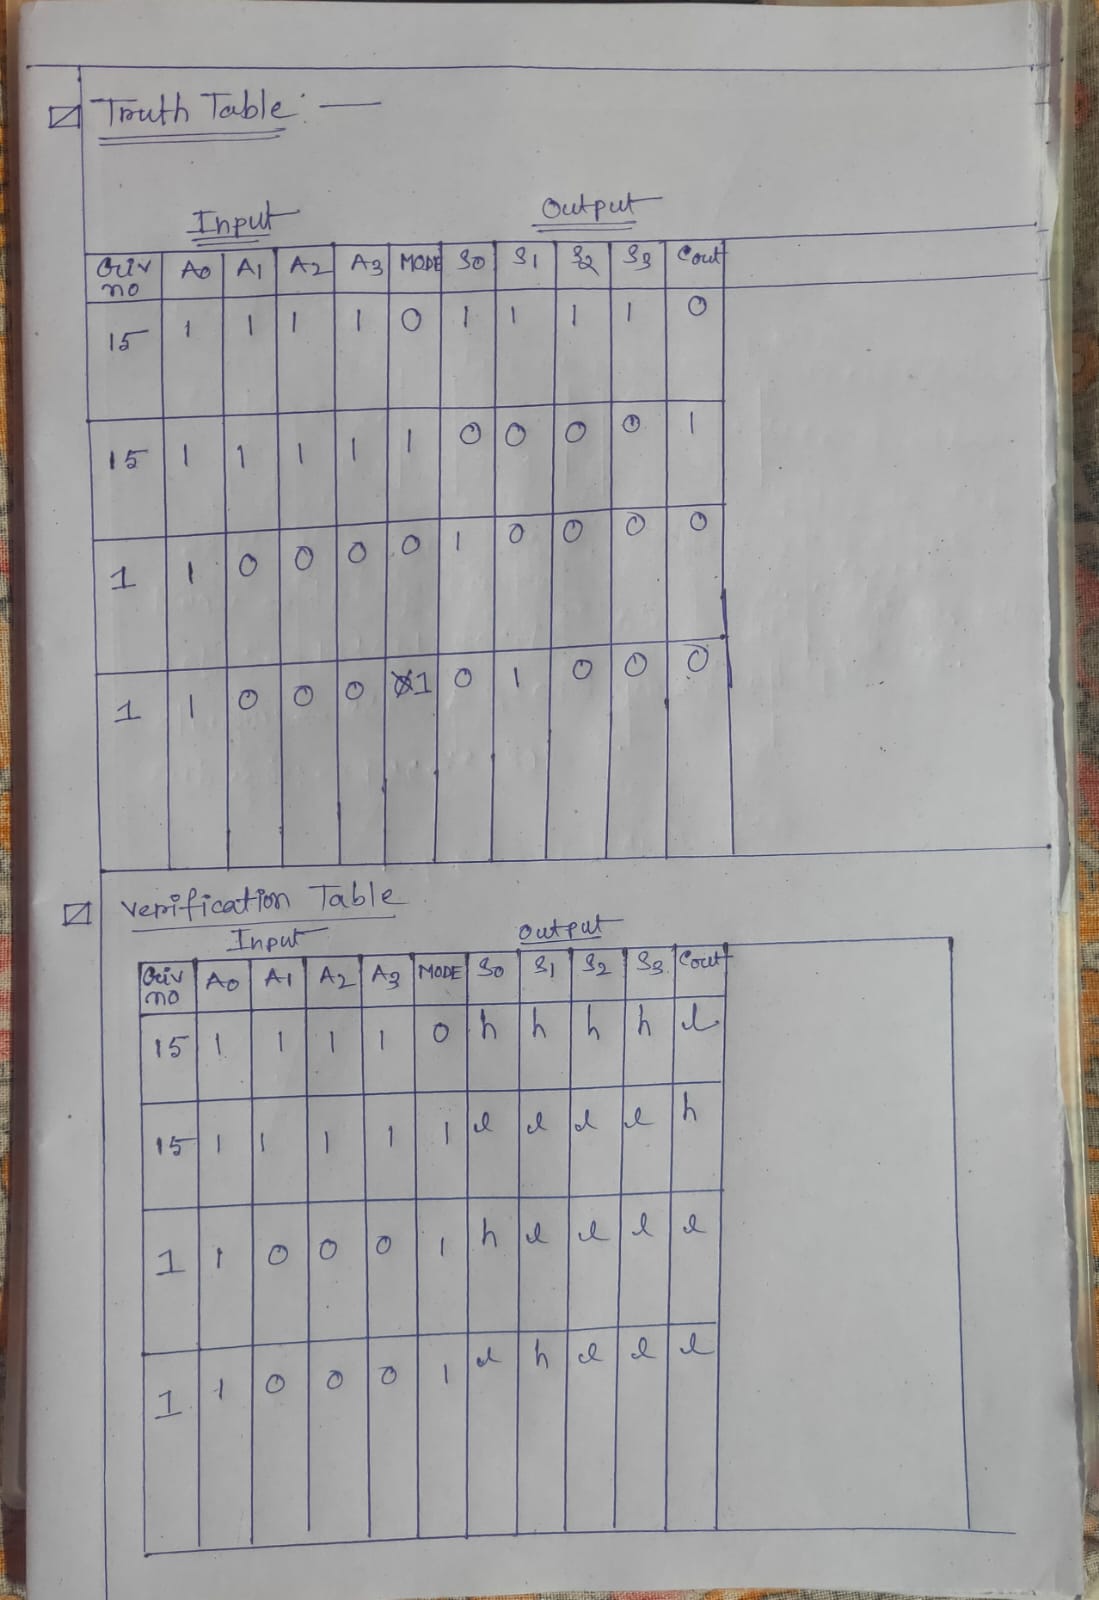 Truth Table: —
Input Output
Griv no A0 A1 A2 A3 MODE S0 S1 S2 S3 Cout
15 1 1 1 1 0 1 1 1 1 0
15 1 1 1 1 1 0 0 0 0 1
1 1 0 0 0 0 1 0 0 0 0
1 1 0 0 0 1 0 1 0 0 0
Verification Table
Input Output
Griv no A0 A1 A2 A3 MODE S0 S1 S2 S3 Cout
15 1 1 1 1 0 h h h h l
15 1 1 1 1 1 l l l l h
1 1 0 0 0 1 h l l l l
1 1 0 0 0 1 l h l l l